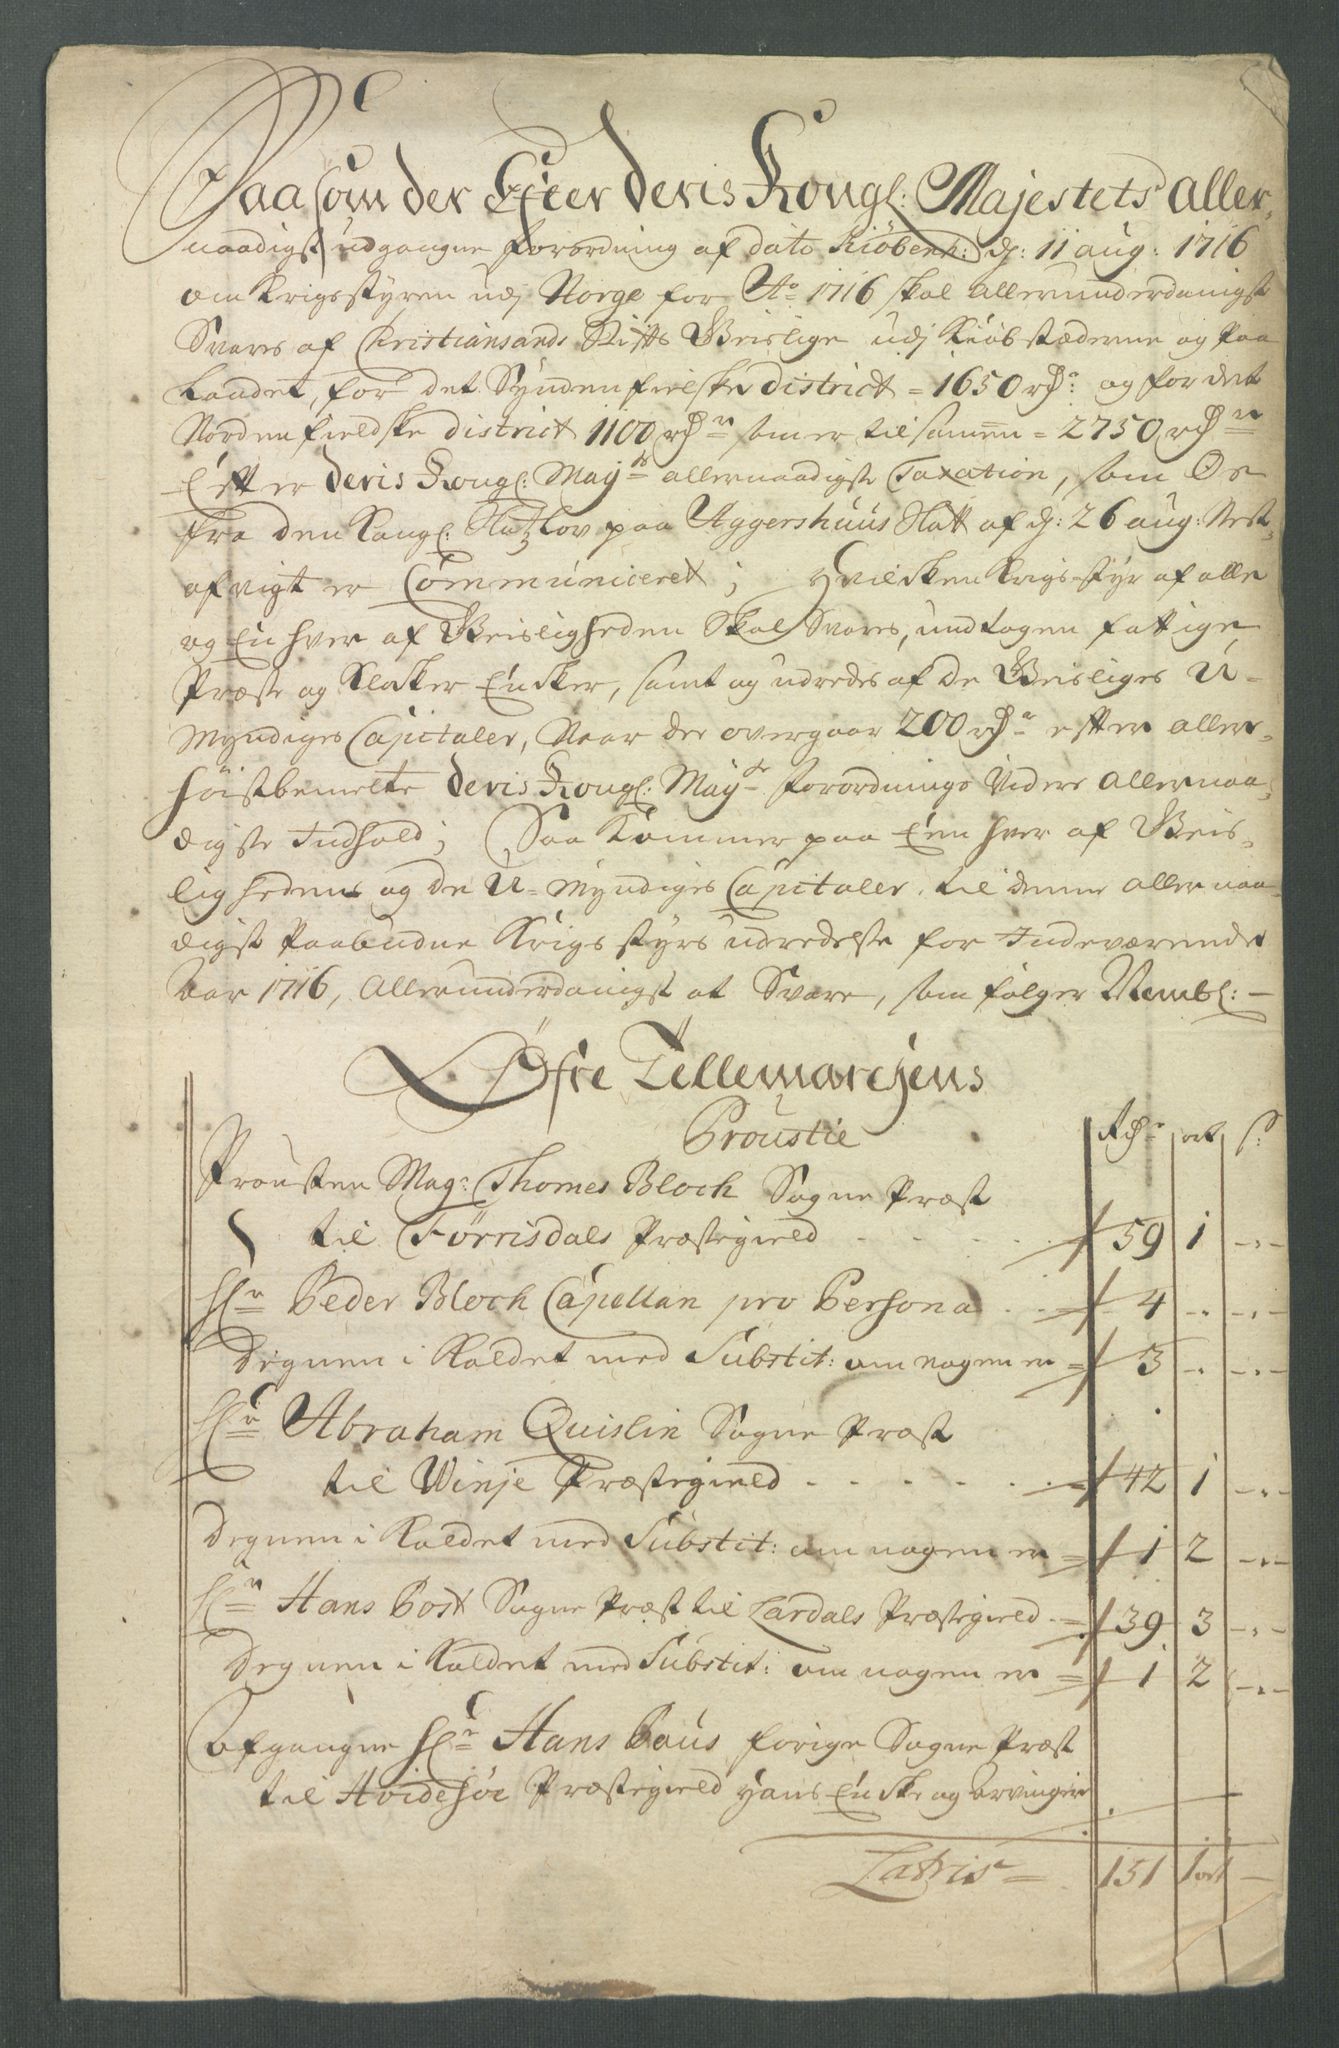 Saasom der Efter deris Kongl: Majestets aller-
naadigst udgangne forordning af dato Kiøbenh: d: 11 aug: 1716
om Krigsstyren udj Norge for Ao 1716 skal allerunderdanigst
Svares af Christiansands Stifts Geislige udj Kiøbstæderne og paa
Landet, for det Syndenfielske district = 1650 rdr og for det
Nordenfieldske district 1100 rdr som er tilsamen = 2750 rdr
Efter deris Kongl: Mayts allernaadigste Taxation, som Os
fra den Kongl: Slotzlov paa Aggershuus Slott af d: 26 aug: Nest-
afvigt er Communiceret; Hvilken Krigs-styr af alle
og En hver af Geisligheden Skal Svares, undtagen fattige
Præste og Klocker Encker, samt og udredes af de Geisliges U-
Myndiges Capitaler, Naar der overgaar 200 rdr efter aller-
høistbemelte deris Kongl: Mayts forordnings Videre allernaa-
digste Indhold; Saa Kommer paa Een hver af Geis-
lighedens og de U-Myndiges Capitaler, til denne allernaa-
digst Paabudne Krigsstyrs udredelse for Indeværende
Aar 1716, allerunderdanigst at Svare, som følger Nembl: -
Øfre Tellemarchens
Proustie
Rdr ort s:
Prousten Mag: Thomes Bloch Sogne Præst
til Førrisdals Præstegield 59 1 -"-
Hr Peder Bloch Capellan pro Persona 4 " -"-
Degnen i Kaldet med Substit: om nogen er 3 " -"-
Hr Abraham Quislin Sogne Præst
til Winje Præstegield 42 1 -"-
Degnen i Kaldet med Substit: om nogen er 1 2 -"-
Hr Hans Post Sogne Præst til Lardals Præstegield 39 3 -"-
Degnen i Kaldet med Substit: om nogen er 1 2 -"-
Afgangne Hr Hans Paus forige Sogne Præst
til Hvidesøe Præstegield Hans Encke og Arvinger
Latris 151 1 ort -